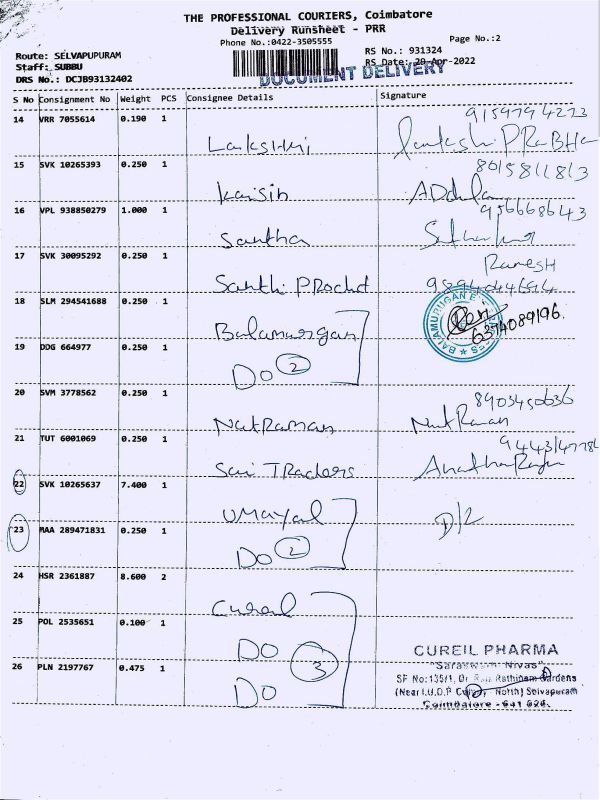 THE PROFESSIONAL COURIERS, Coimbatore
Delivery Runsheet - PRR
Phone No.:0422-3505555
Page No.:2
Route: SELVAPUPURAM
RS No.: 931324
Staff: SUBBU
RS Date: 29-Apr-2022
DRS No.: DCJB93132402
DOCUMENT DELIVERY
S No Consignment No Weight PCS Consignee Details Signature
14 VRR 7055614 0.190 1 9159794273
Lakshmi PRABHA
15 SVK 10265393 0.250 1 8015811813
Kaisin
16 VPL 938850279 1.000 1 956668643
Santha
17 SVK 30095292 0.250 1 Ramesh
Santhi Prodct
18 SLM 294541688 0.250 1
Balamurgan 6374089196
19 DDG 664977 0.250 1
DO 2
20 SVM 3778562 0.250 1 8903450636
NatRaman NatRaman
21 TUT 6001069 0.250 1
Sai TRaders
22 SVK 10265637 7.400 1
UMayal D/2
23 MAA 289471831 0.250 1
DO 2
24 HSR 2361887 8.600 2
25 POL 2535651 0.100 1
DO 3
CUREIL PHARMA
"Saraswathi Nivas"
26 PLN 2197767 0.475 1
SF No:135/1, Dr Rathinam Gardens
DO
North) Selvapuram
Coimbatore